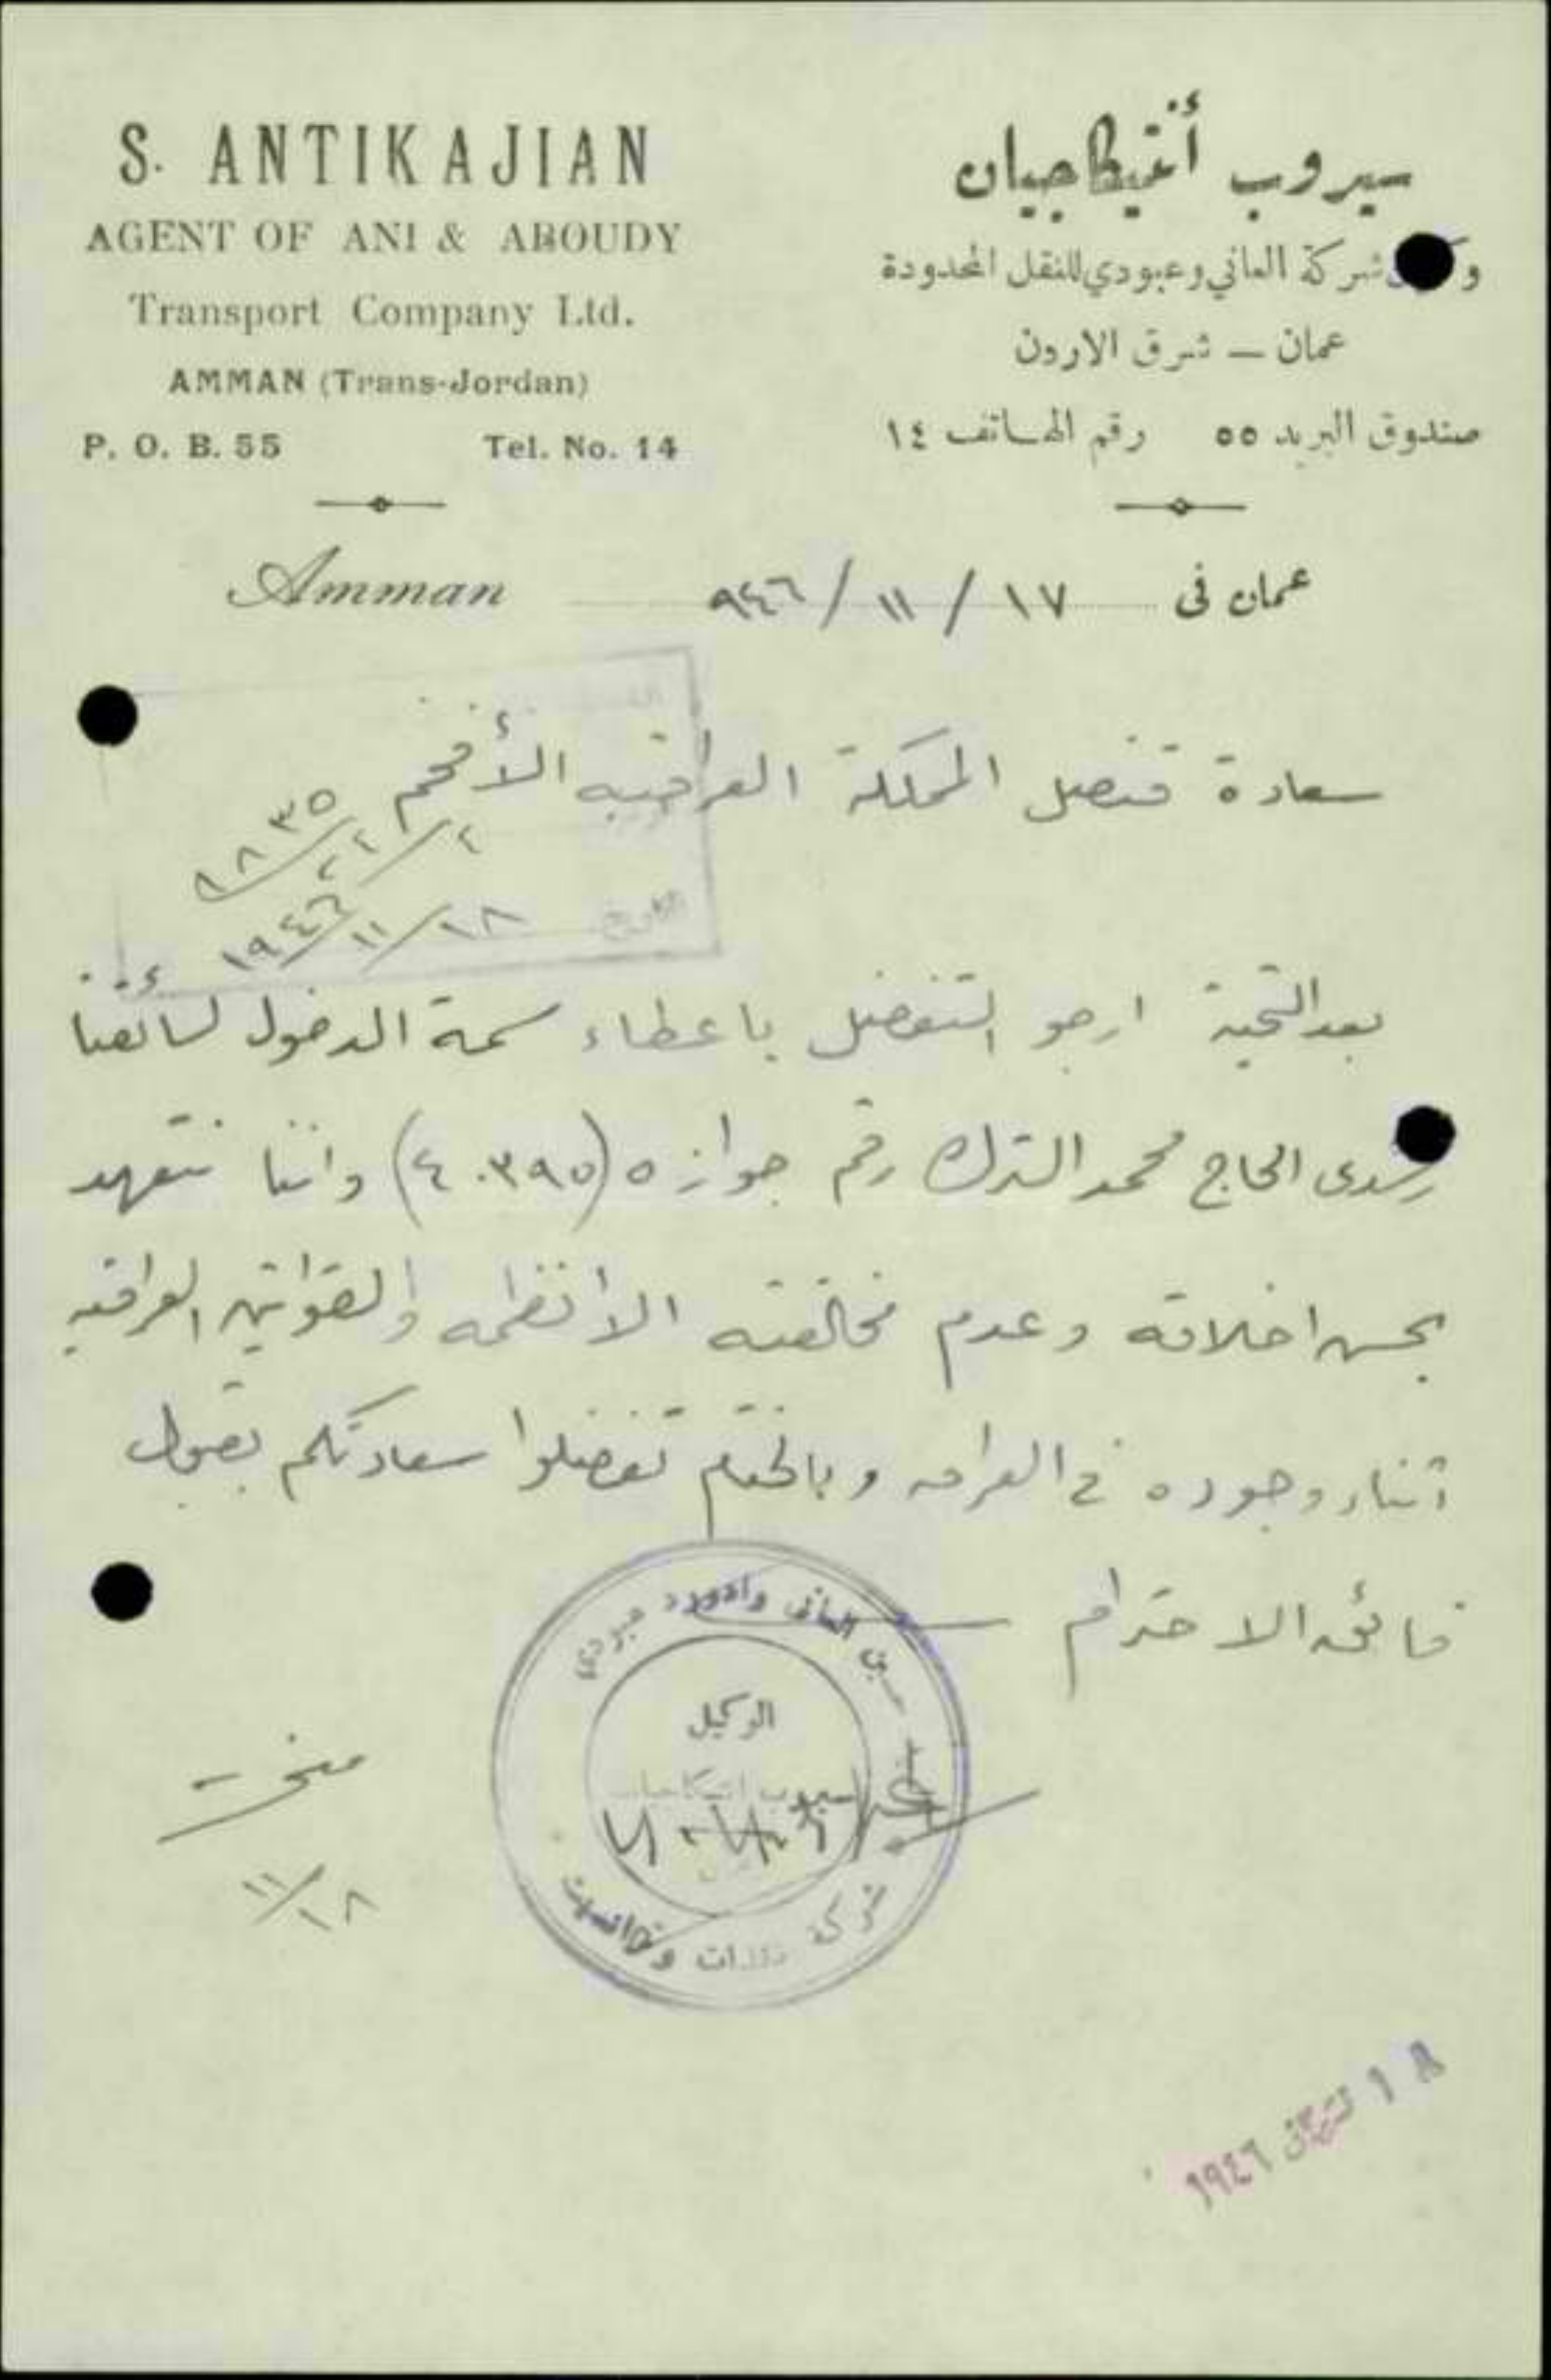 S. ANTIKAJIAN
AGENT OF ANI & ABOUDY
Transport Company Ltd.
AMMAN (Trans-Jordan)
P. O. B. 55 Tel. No. 14
سيروب أنتيكاجيان
شركة العاني وعبودي للنقل المحدودة
عمان — شرق الاردن
صندوق البريد ٥٥ رقم الهاتف ١٤
Amman
عمان فى ١٧ / ١١ / ٩٤٦
سعادة قنصل المملكة العراقيه الأفخم
التاريخ ١٨/١١/١٩٤٦
بعد التحية ارجو التفضل باعطاء سمة الدخول لسائقنا
رشدى الحاج محمد الترك رقم جوازه (٤٠٣٩٥) واننا نتعهد
بحسن اخلاقه وعدم مخالفته الانظمه والقوانين العراقيه
اثناء وجوده في العراق وبالختام تفضلوا سعادتكم بقبول
فائق الاحترام
العاني وادورد عبودي
الوكيل
سيروب انتيكاجيان
شركة
منحت
١٨/١١
١٨ تشرين ١٩٤٦